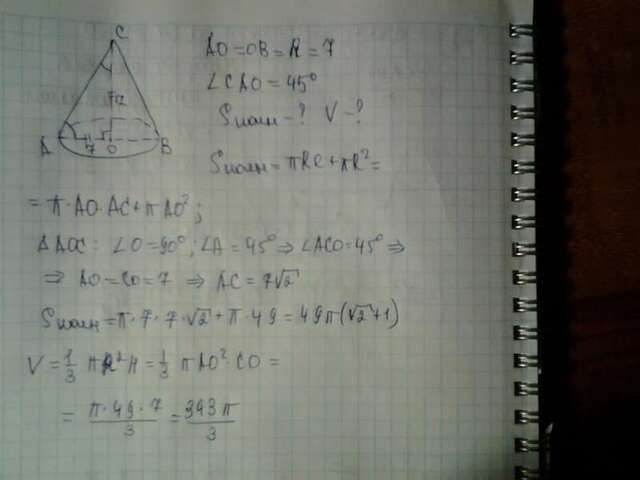 C
A 7 O B
AO = OB = R = 7
∠CAO = 45°
Sполн - ? V - ?
Sполн = πRl + πR² =
= π·AO·AC + πAO²;
ΔAOC: ∠O = 90°; ∠A = 45° ⇒ ∠ACO = 45° ⇒
⇒ AO = CO = 7 ⇒ AC = 7√2
Sполн = π·7·7·√2 + π·49 = 49π(√2+1)
V = 1/3 πR²H = 1/3 πAO²·CO =
= π·49·7/3 = 343π/3